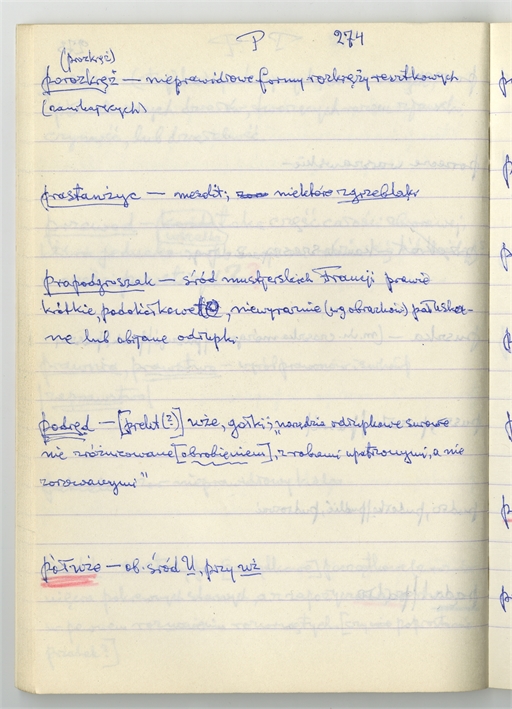 P 274
(prozkręż)
porozkręż — nieprawidłowe formy rozkręży rewitkowych
(zamkarskych)
prastanżyc — mezolit; niektóre zgrzeblaki
prapodgroszak — śród mustjerskich Francji prawie
krótkie, podokrągławe, niewyraźnie (wg obrazków) półłuska-
ne lub obijane odłupki.
podręd — [prelit (?)] wże, gołki; "narzędzia odłupkowe surowe
nie zróżnicowane [obrobieniem], z robami upatrzonymi, a nie
zorzowanymi"
półwże — ob. śród U, przy wż